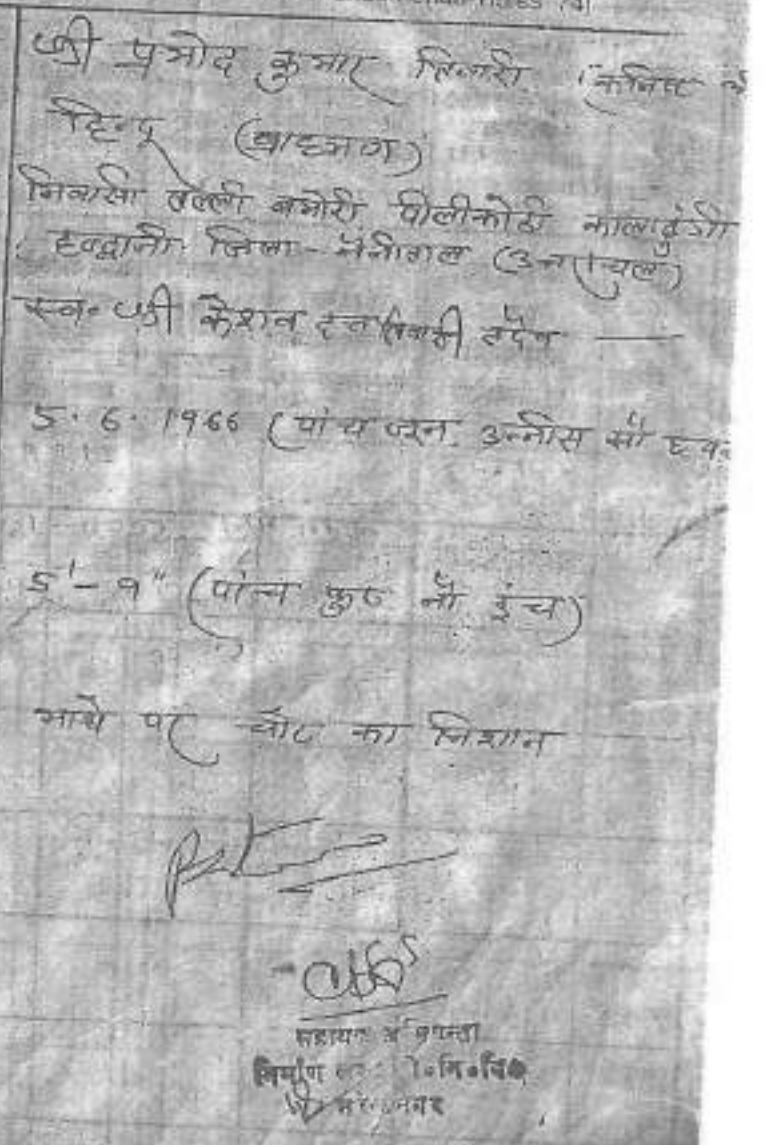 श्री प्रमोद कुमार तिवारी (कनिष्ठ
हिन्दू (ब्राह्मण)
निवासी तल्ली बमोरी पीलीकोठी कालाढुंगी
हल्द्वानी जिला - नैनीताल (उत्तरांचल)
स्व० श्री केशव दत्त तिवारी तदैव —
5. 6. 1966 (पांच जून उन्नीस सौ
5'-9" (पांच फुट नौ इंच)
माथे पर चोट का निशान
सहायक अभियन्ता
निर्माण लो०नि०वि०